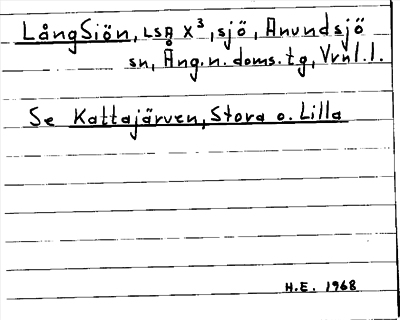 LångSiön, LSA X³, sjö, Anundsjö
sn, Ång. n. doms. tg, Vrnl. l.
Se Kattajärven, Stora o. Lilla
H.E. 1968